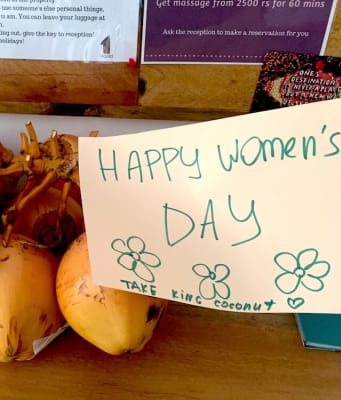 use someone else personal things.
am. You can leave your luggage at
ing out, give the key to reception!
holidays!
Get massage from 2500 rs for 60 mins
Ask the reception to make a reservation for you
ONE'S
DESTINATION
IS NEVER A PLACE
BUT A NEW
HAPPY women's
DAY
TAKE KING COCONUT